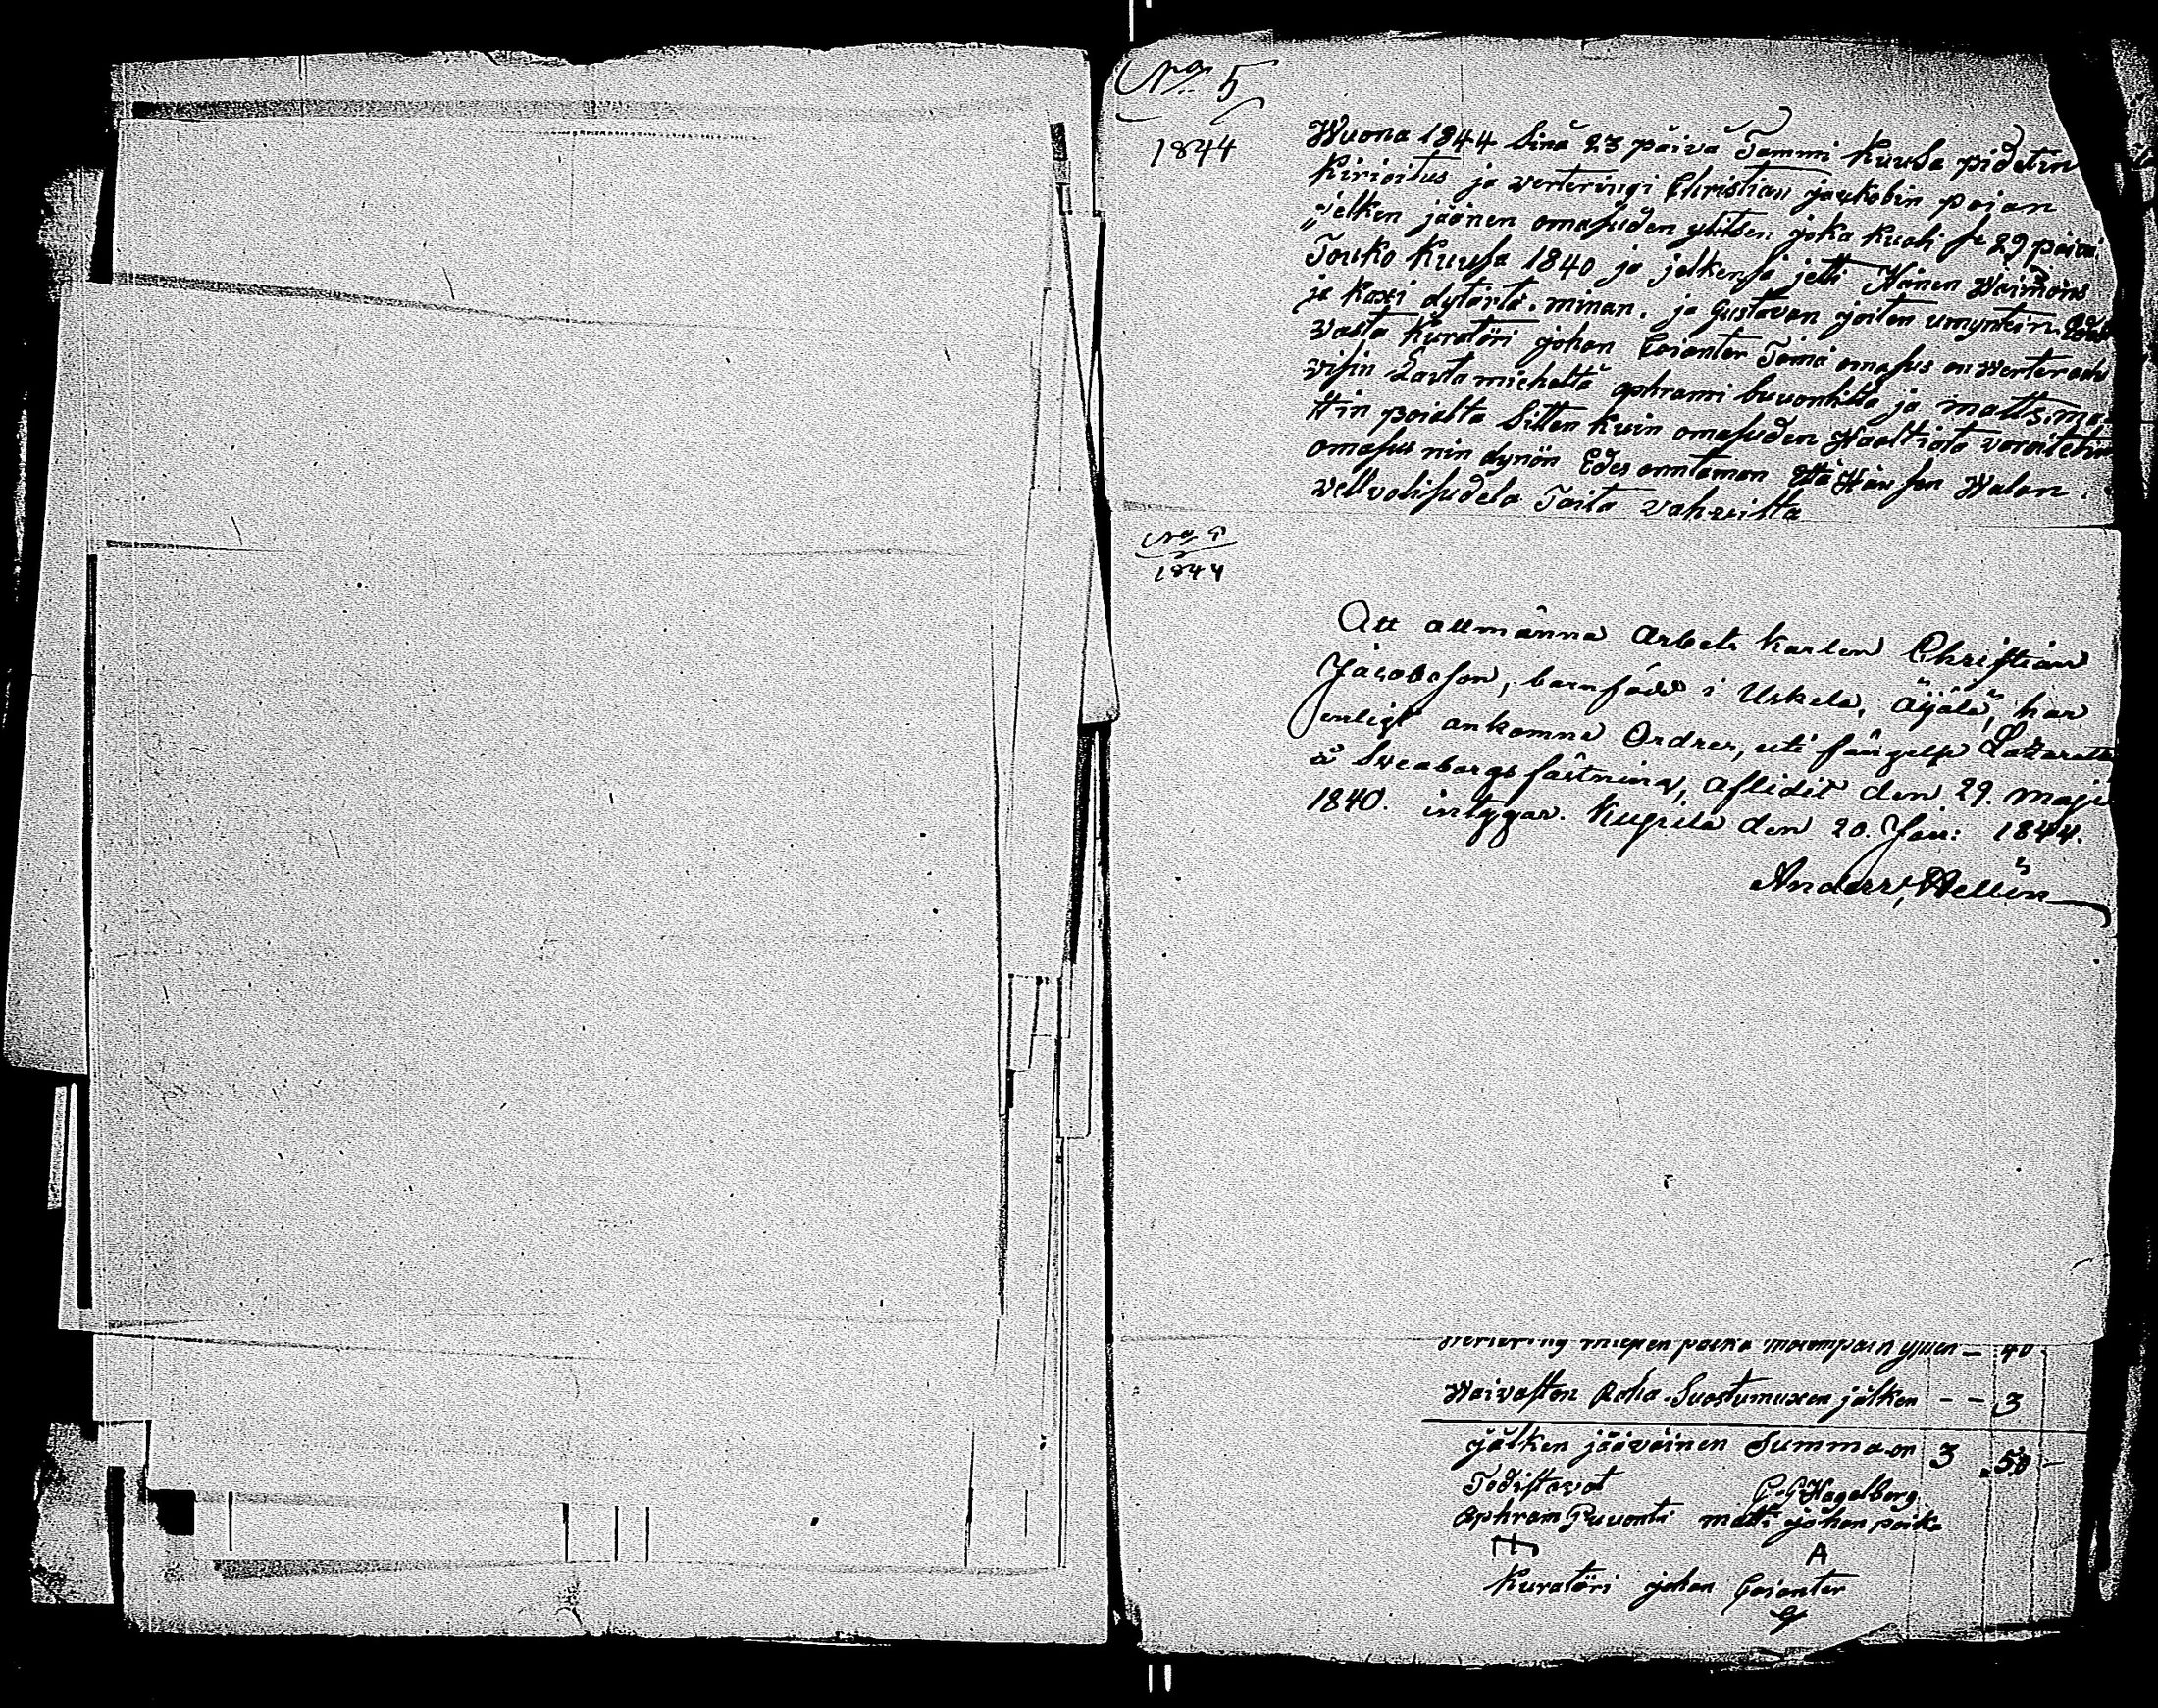 No 5
1844
Wuona 1844 Sinä 23 päivä Tammi Kuusa pidetin
Kirioitus ja verteringi Christian jaakobin poian
jelken jäänen omasuden ylitsen joka kuoli se 29 päivä
Touko Kuusa 1840 ja jelkensä jetti Hänen Waimons
ja kaxi dytärtä. minan. ja Gustavan joiten umyntein
vasta Kuratöri johan Coianter Tämä omasus on Werterattu
visin Lautamiehettä aphrami buuontilta ja matts. ma-
ttin poialta Sitten kuin omasuden Haaltiata varoitetin
omasus nin dynön Edes anntaman Että Hän sen Walan
vellvolisudela Taita vahvistta
No 5
1844
Att allmänna arbets karlen Christian
Jacobsson, barnfödd i Uskela, Äijälä, har
enligt ankomne Ordres, uti fängelse Lazarett
å Sveaborgs fästning, aflidit den 29. maji
1840. intygar. Kugila den 20. Jan: 1844.
Anders Hellén
Wertering miexen palka molompain yxien — 40
Waivasten Raha Suostumuxen jälken - - 3
jälken jääväinen Summa on 3 50 —
Todistavat G. G. Hagelberg
Aphram Puuonti matti johan poika
A
Kuratöri johan Coianter